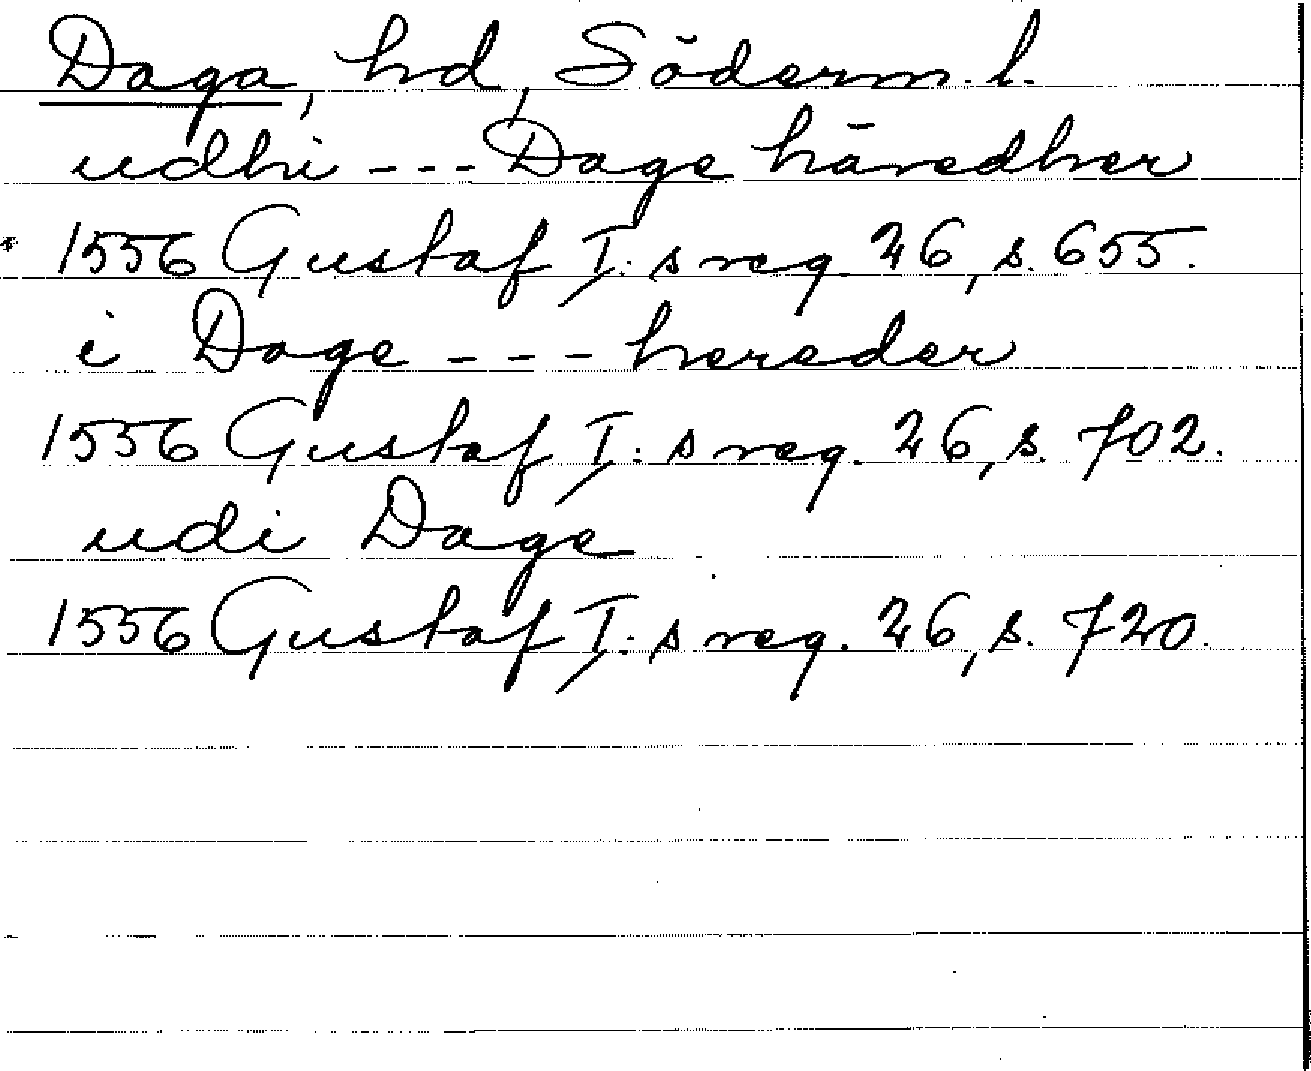 Daga, hd, Söderm. l.
udhi --- Dage häredher
1556 Gustaf I: s reg. 26, s. 655.
i Dage --- hereder
1556 Gustaf I: s reg. 26, s. 702.
udi Dage
1556 Gustaf I: s reg. 26, s. 720.